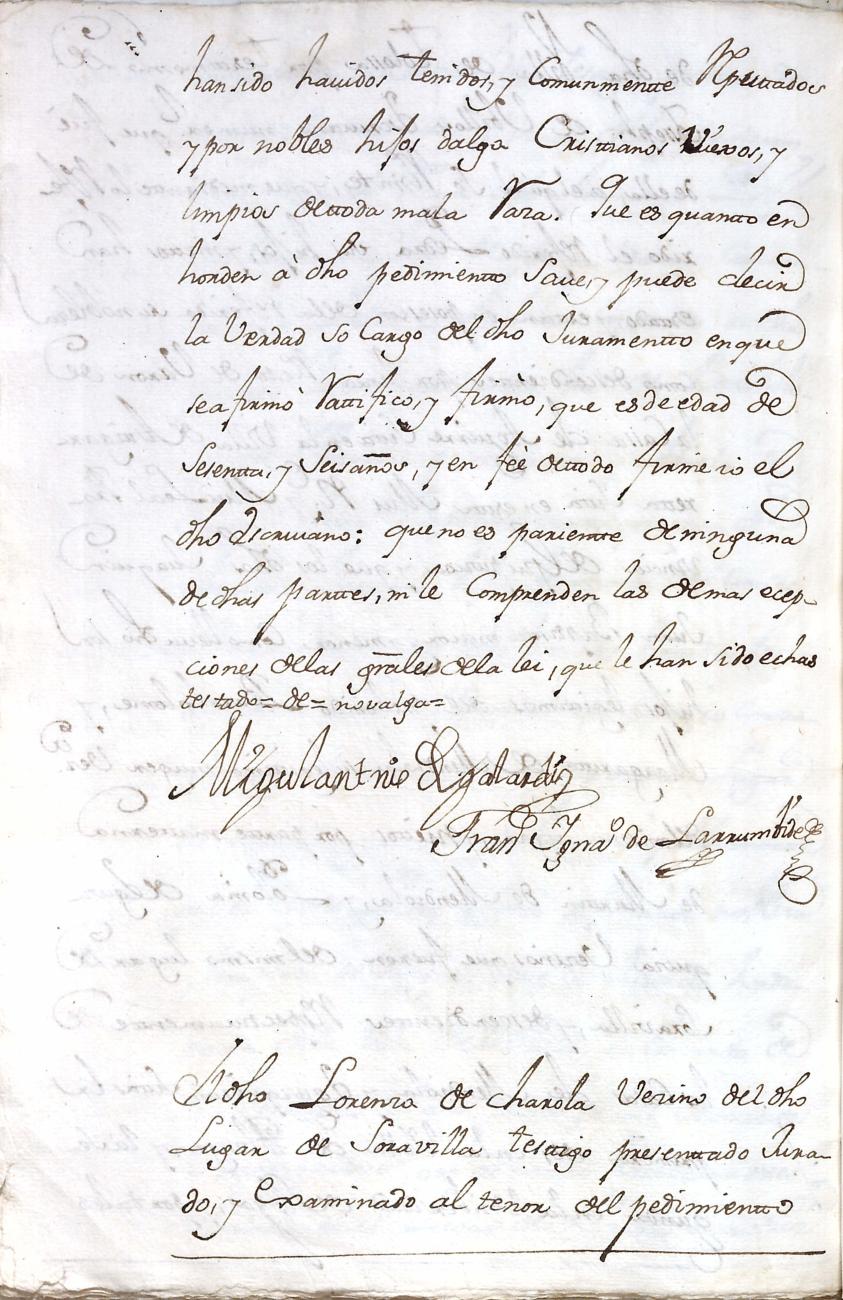 han sido havidos tenidos, y Comunmentte Rputtados
y por nobles hijos dalga Cristtianos Viexos, y
limpios dettoda mala Raza. Que es quantto en
horden à dho pedimientto Save, y puede decir
la Verdad so Cargo del dho Juramentto en que
se afirmò Rattifico, y firmò, que es de edad de
Sesentta, y Seis años, y en feè dettodo firme io el
dho Escrivano: que no es parientte de ninguna
de dhas parttes, ni le Comprenden las demas ecep-
ciones delas grāles dela lei, que le han sido echas
testado= de= novalga=
Miguel antnio de galardi
Franco Ignao de Larrumbide
El dho Lorenzo de charola Vezino del dho
Lugar de Soravilla testtigo presenttado Jura-
do, y examinado al tenor del pedimientto